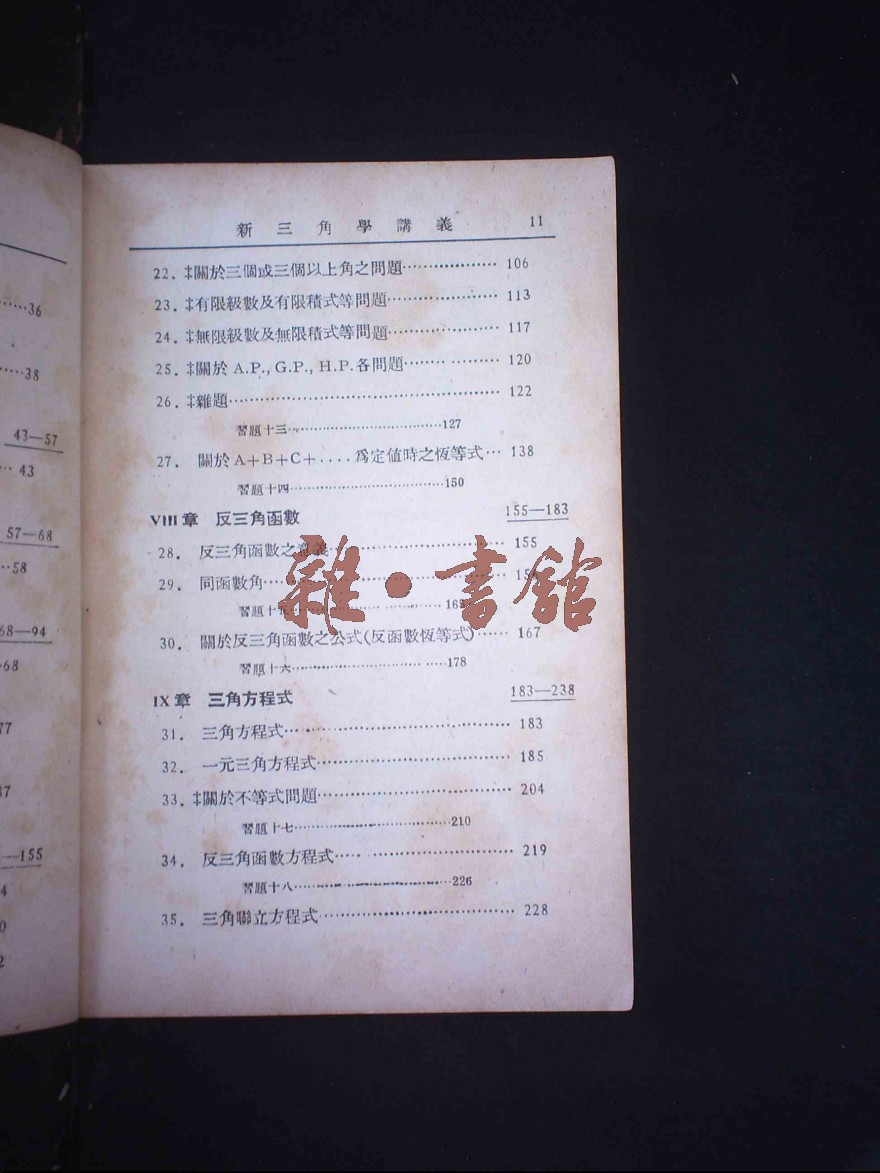 36
38
43—57
43
57—68
58
68—94
68
77
37
—155
4
0
2
新三角學講義 11
22. ‡關於三個或三個以上角之問題 106
23. ‡有限級數及有限積式等問題 113
24. ‡無限級數及無限積式等問題 117
25. ‡關於 A.P., G.P., H.P. 各問題 120
26. ‡雜題 122
習題十三 127
27. 關於 A+B+C+....爲定値時之恆等式 138
習題十四 150
VIII章 反三角函數 155—183
28. 反三角函數之意義 155
29. 同函數角
習題十五
30. 關於反三角函數之公式(反函數恆等式) 167
習題十六 178
IX章 三角方程式 183—238
31. 三角方程式 183
32. 一元三角方程式 185
33. ‡關於不等式問題 204
習題十七 210
34. 反三角函數方程式 219
習題十八 226
35. 三角聯立方程式 228
雜·書舘